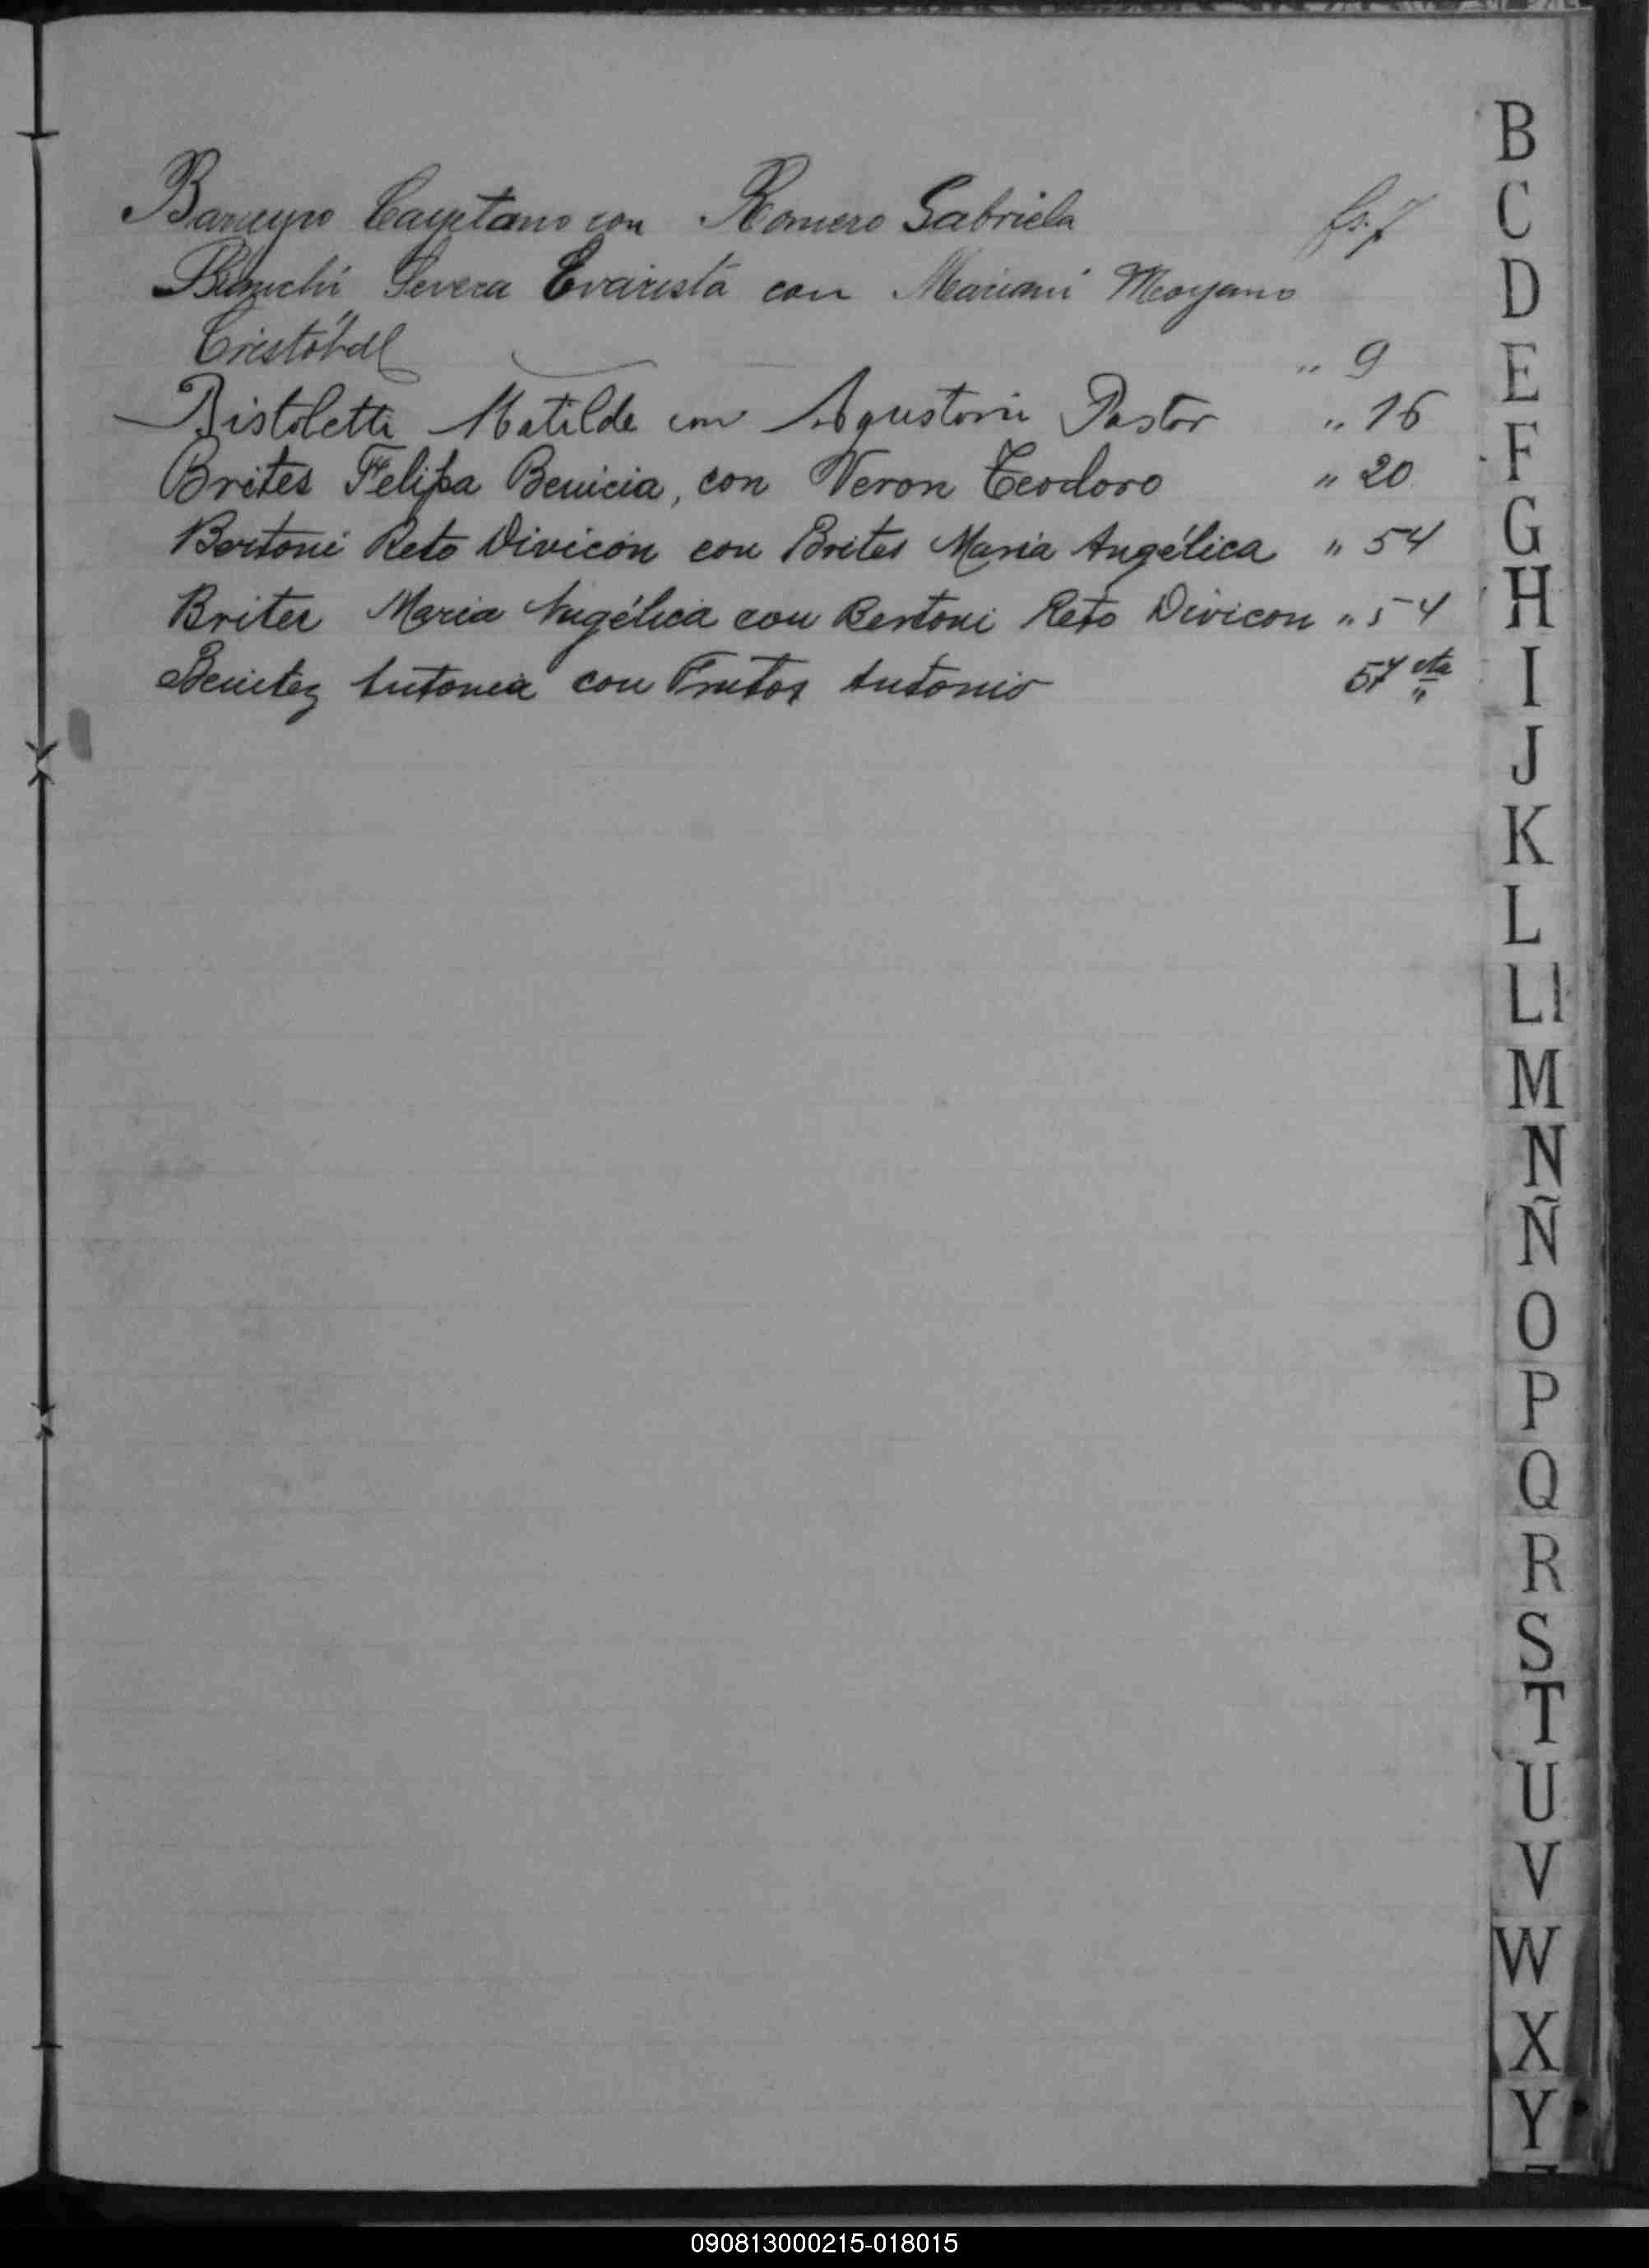 Barreyro Cayetano con Romero Gabriela fs. 7
Bianchi Severa Evarista con Mariani Moyano
Cristóbal " 9
Bistoletti Matilde con Agustoni Pastor " 16
Brites Felipa Benicia, con Veron Teodoro " 20
Bertoni Reto Divicon con Brites Maria Angélica " 54
Brites Maria Angélica con Bertoni Reto Divicon " 54
Benitez Antonia con Frutos Antonio 57 vta
B
C
D
E
F
G
H
I
J
K
L
Ll
M
N
Ñ
O
P
Q
R
S
T
U
V
W
X
Y
090813000215-018015